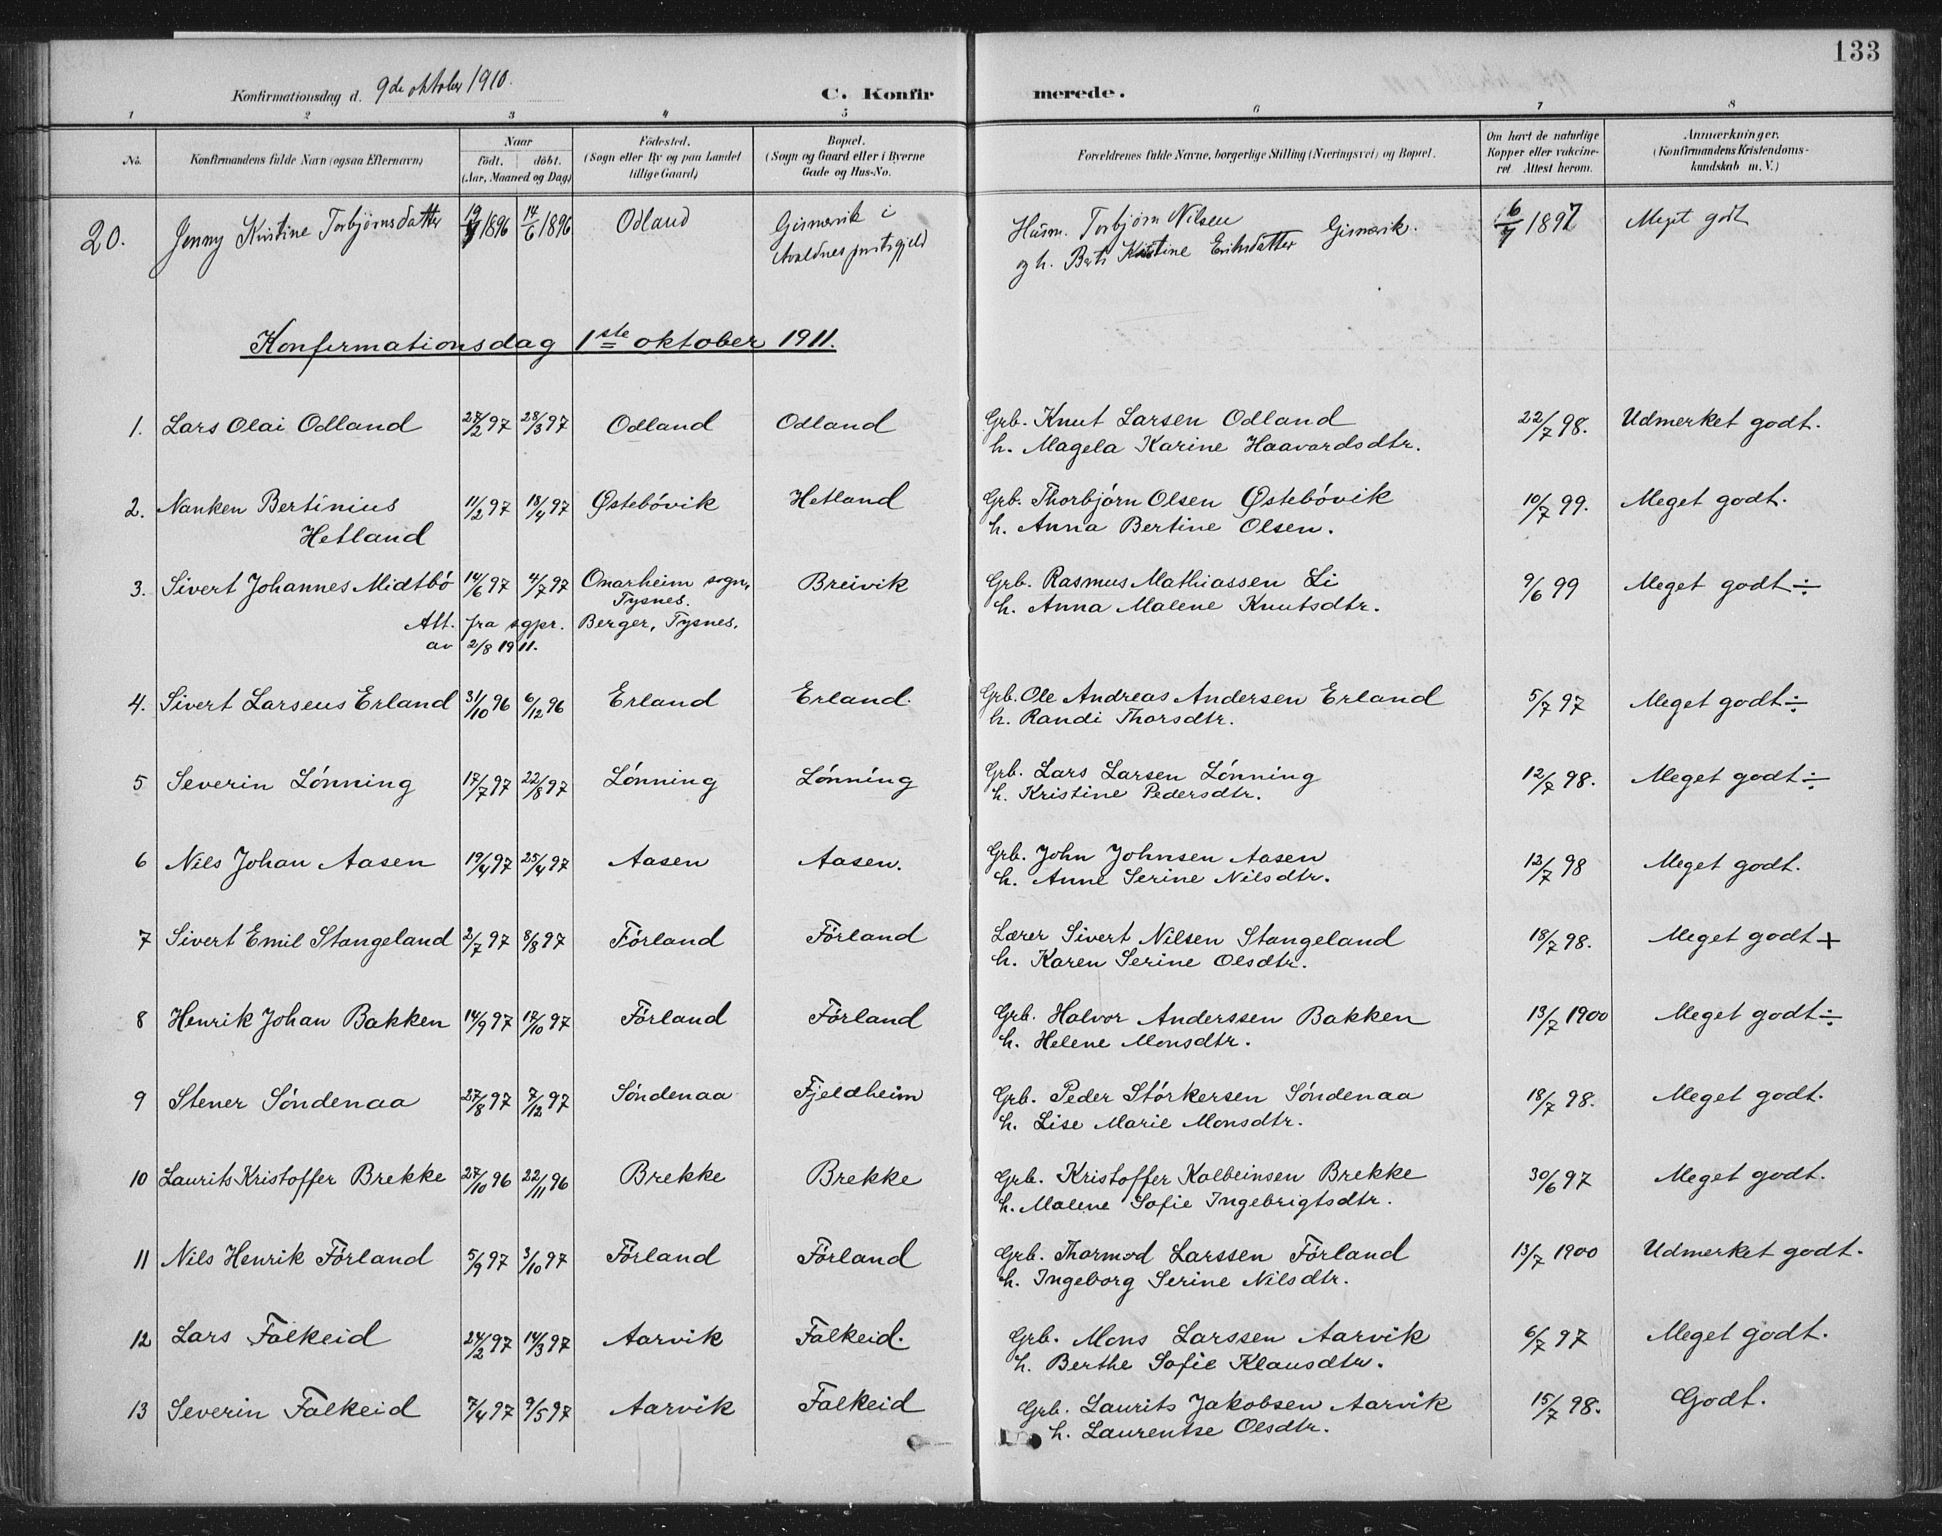 133
Konfirmationsdag d. 9de oktober 1910. C. Konfir merede.
1 2 3 4 5 6 7 8
No. Konfirmandens fulde Navn (ogsaa Efternavn) Naar födt. döbt. (Aar, Maaned og Dag) Födested. (Sogn eller By og paa Landet tillige Gaard) Bopæl. (Sogn og Gaard eller i Byerne Gade og Hus-No. Forældrenes fulde Navne, borgerlige Stilling (Næringsvei) og Bopæl. Om havt de naturlige Kopper eller vakcineret. Attest herom. Anmærkninger. (Konfirmandens Kristendomskundskab m. V.)
20. Jenny Kristine Torbjörnsdatter 1896 14/6 1896 Odland Gismarvik i Husm. Torbjörn Nilsen Gismarvik. 6/7 1897 Meget godt
Avaldnes prestegjeld og h. Berta Kristine Eriksdatter
Konfirmationsdag 1ste oktober 1911.
1. Lars Olai Odland 27/2 97 28/3 97 Odland Odland Grb. Knut Larsen Odland 22/7 98. Udmerket godt.
h. Magela Karine Haavardsdtr.
2. Nanken Bertinius 11/2 97 18/4 97 Østebóvik Hetland Grb. Thorbjórn Olsen Østebóvik 10/7 99. Meget godt.
Hetland h. Anna Bertine Olsen.
3. Sivert Johannes Midtbó 14/6 97 4/7 97 Onarheim sogn, Breivik Grb. Rasmus Mathiassen Li 9/6 99 Meget godt ÷
Tysnes. h. Anna Malene Knutsdtr.
Att. fra sgpr. Berger, Tysnes,
av 2/8 1911.
4. Sivert Larseus Erland 31/10 96 6/12 96 Erland Erland. Grb. Ole Andreas Andersen Erland 5/7 97 Meget godt ÷
h. Randi Thorsdtr.
5 Severin Lónning 17/7 97 22/8 97 Lónning Lónning Grb. Lars Larsen Lónning 12/7 98. Meget godt ÷
h. Kristine Pedersdtr.
6 Nils Johan Aasen 19/4 97 25/4 97 Aasen Aasen. Grb. John Johnsen Aasen 12/7 98 Meget godt.
h. Anne Serine Nilsdtr.
7 Sivert Emil Stangeland 2/7 97 8/8 97 Fórland Fórland Lærer Sivert Nilsen Stangeland 18/7 98. Meget godt +
h. Karen Serine Olsdtr.
8 Henrik Johan Bakken 14/9 97 17/10 97 Fórland Fórland Grb. Halvor Anderssen Bakken 13/7 1900 Meget godt ÷
h. Helene Monsdtr.
9 Stener Sóndenaa 27/8 97 7/12 97 Sóndenaa Fjeldheim Grb. Peder Stórkersen Sóndenaa 18/7 98. Meget godt.
h. Lise Marie Monsdtr.
10 Laurits Kristoffer Brekke 27/10 96 22/11 96 Brekke Brekke Grb. Kristoffer Kolbeinsen Brekke 30/6 97 Meget godt.
h. Malene Sofie Ingebrigtsdtr.
11 Nils Henrik Fórland 5/9 97 3/10 97 Fórland Fórland Grb. Thormod Larssen Fórland 13/7 1900 Udmerket godt.
h. Ingeborg Serine Nilsdtr.
12 Lars Falkeid 24/2 97 14/3 97 Aarvik Falkeid. Grb. Mons Larssen Aarvik 6/7 97 Meget godt.
h. Berthe Sofie Klausdtr.
13 Severin Falkeid 7/4 97 9/5 97 Aarvik Falkeid Grb. Laurits Jakobsen Aarvik 15/7 98. Godt.
h. Laurentse Olsdtr.